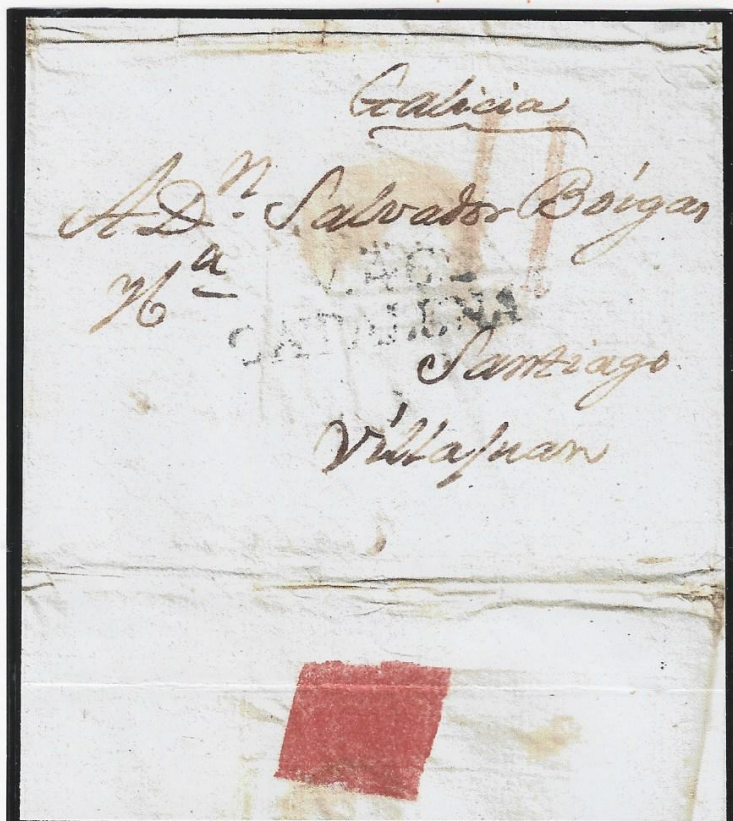 Galicia
A Dn. Salvador Boígas
Na
Santiago
Villajuan